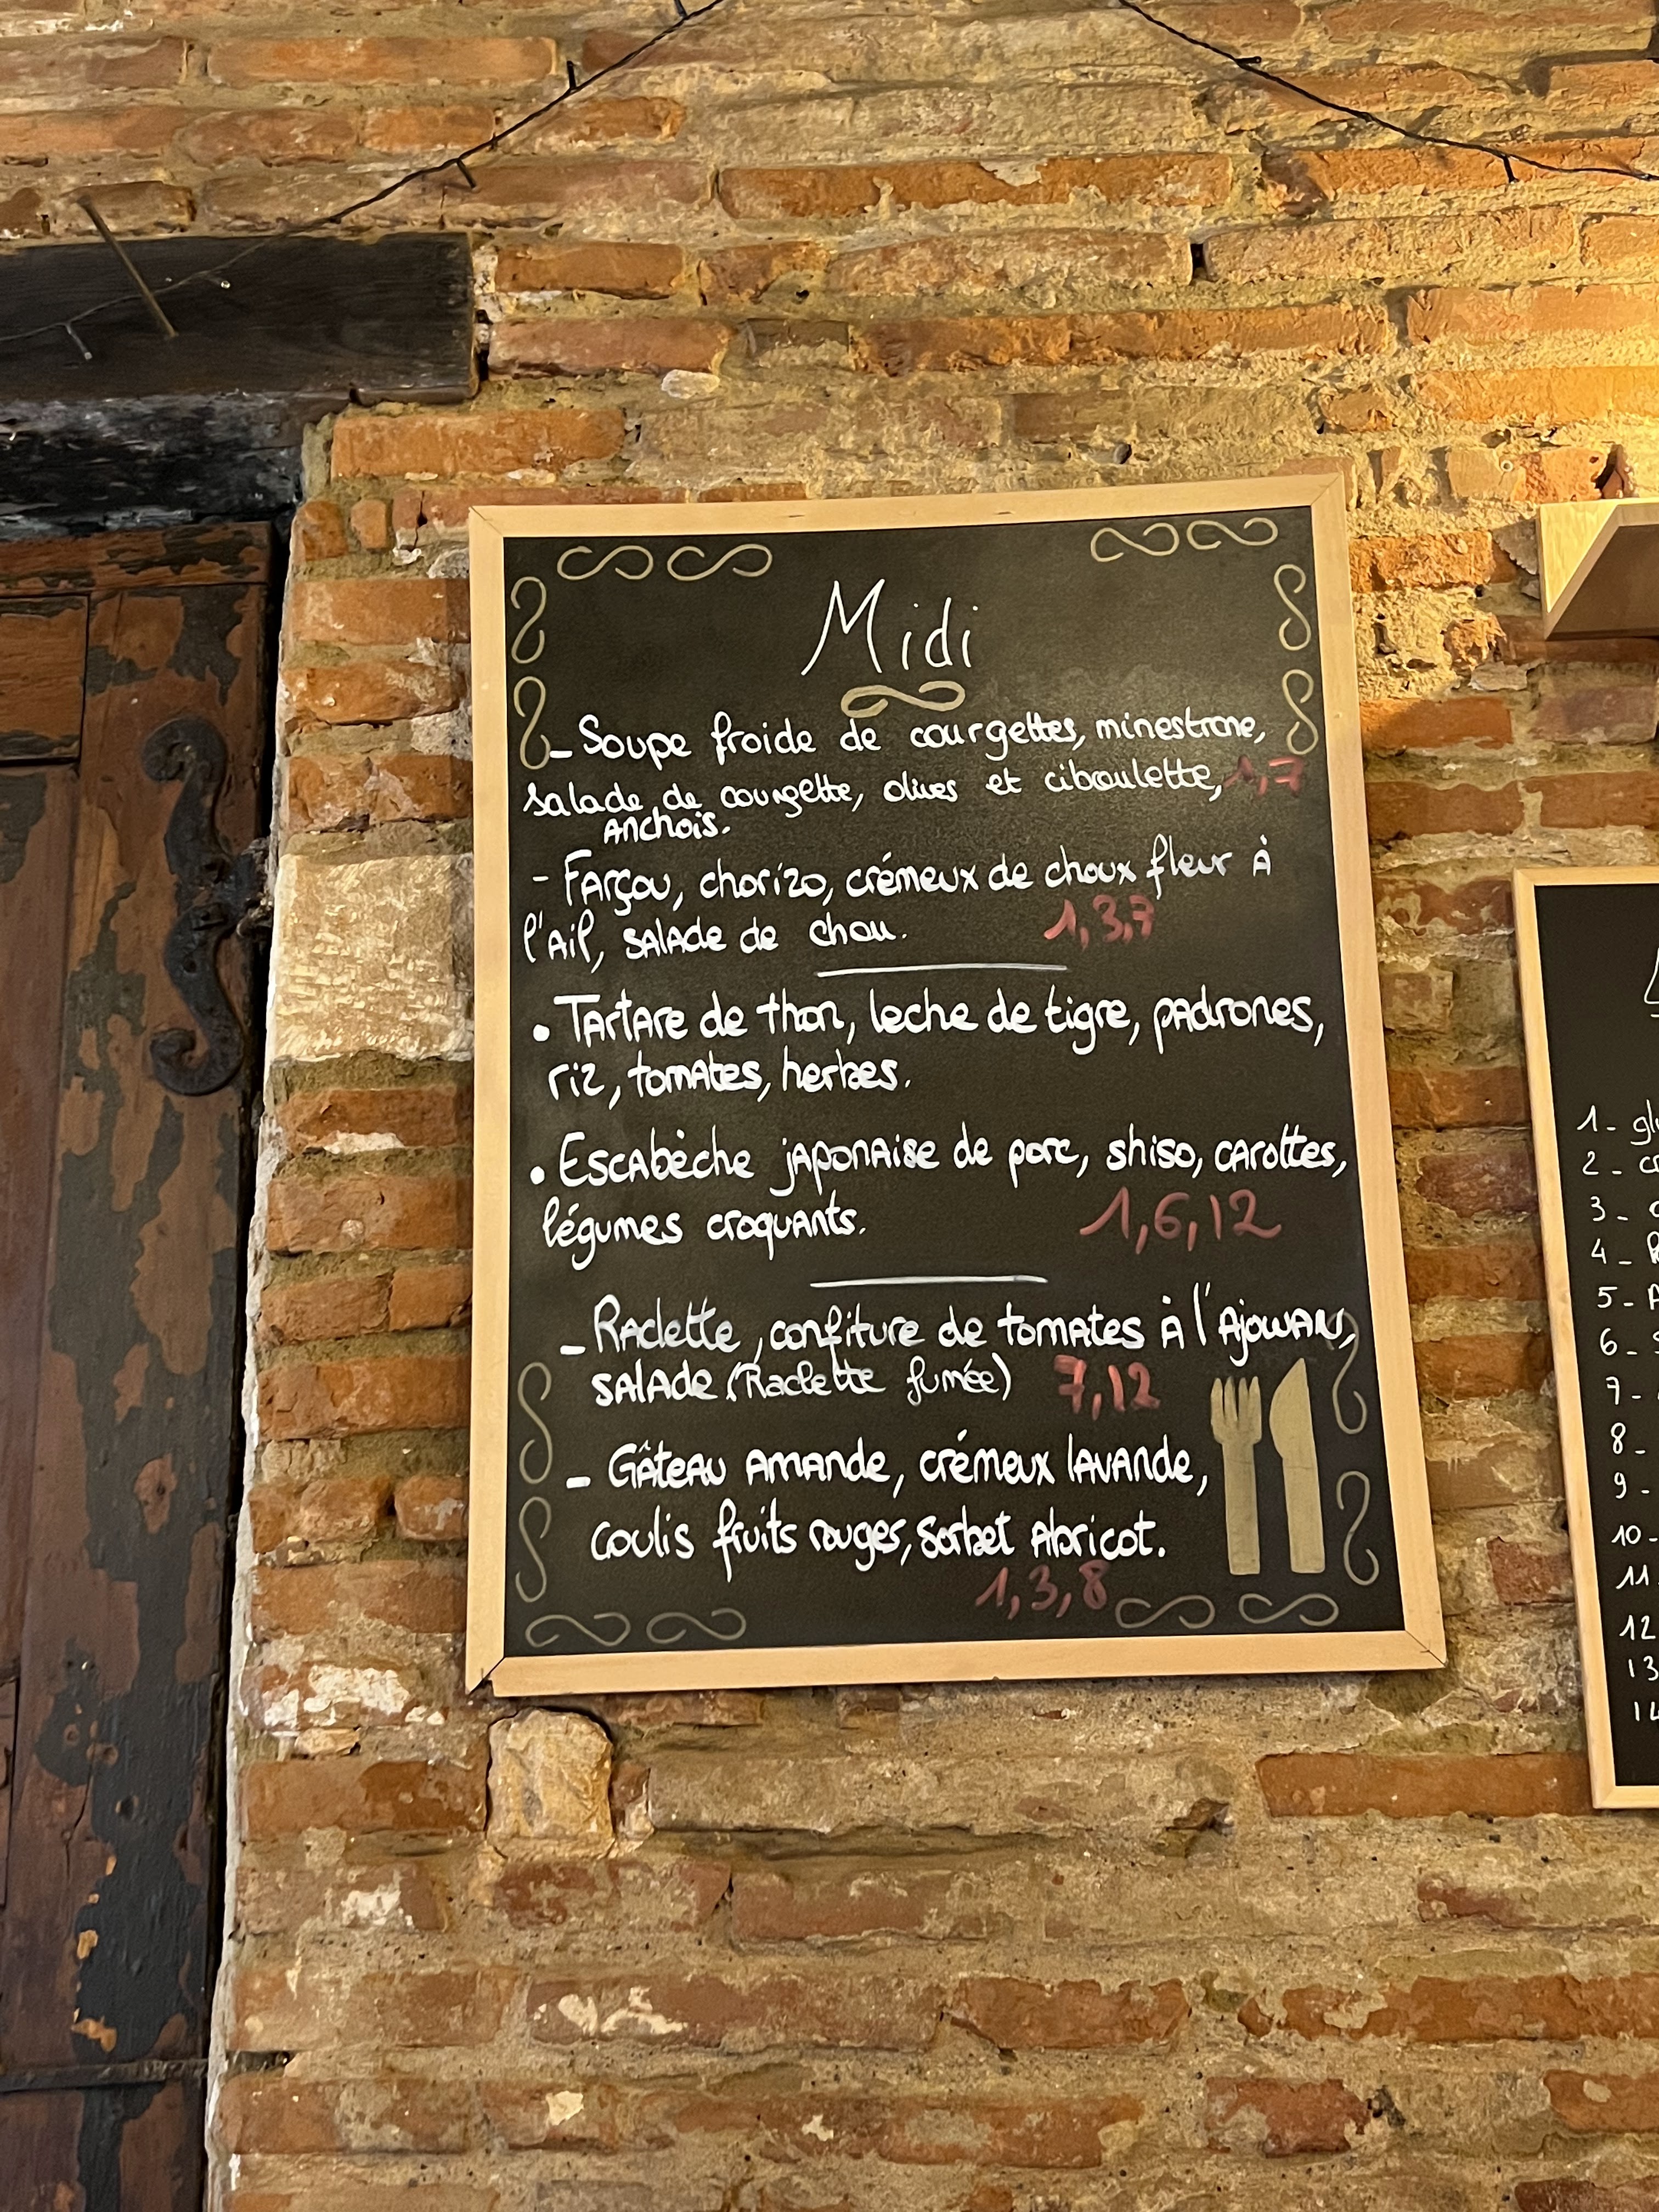 Midi
- Soupe froide de courgettes, minestrone,
salade de courgette, olives et ciboulette, 1,7
Anchois.
- Farçou, chorizo, crémeux de choux fleur à
l'ail, salade de chou. 1,3,7
• Tartare de thon, leche de tigre, padrones,
riz, tomates, herbes.
• Escabèche japonaise de porc, shiso, carottes,
légumes croquants. 1,6,12
- Raclette, confiture de tomates à l'Ajowan,
salade (Raclette fumée) 7,12
- Gâteau amande, crémeux lavande,
coulis fruits rouges, sorbet abricot.
1,3,8
1-
2-
3-
4-
5-
6-
7-
8-
9-
10-
11
12
13